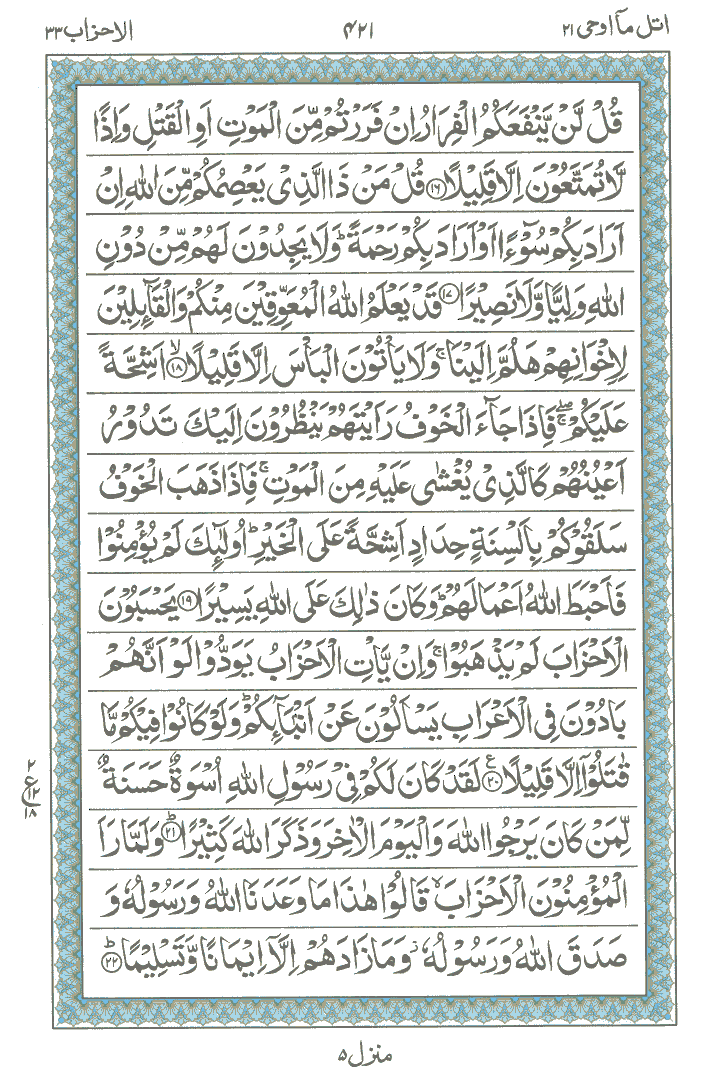 اتل مآ اوحی ۲۱
۴۲۱
الاحزاب ۳۳
قُلْ لَّنْ يَّنْفَعَكُمُ الْفِرَارُ اِنْ فَرَرْتُمْ مِّنَ الْمَوْتِ اَوِ الْقَتْلِ وَاِذًا
لَّا تُمَتَّعُوْنَ اِلَّا قَلِيْلًا ۝۱۶ قُلْ مَنْ ذَا الَّذِىْ يَعْصِمُكُمْ مِّنَ اللّٰهِ اِنْ
اَرَادَ بِكُمْ سُوْٓءًا اَوْ اَرَادَ بِكُمْ رَحْمَةً ؕ وَلَا يَجِدُوْنَ لَهُمْ مِّنْ دُوْنِ
اللّٰهِ وَلِيًّا وَّلَا نَصِيْرًا ۝۱۷ قَدْ يَعْلَمُ اللّٰهُ الْمُعَوِّقِيْنَ مِنْكُمْ وَالْقَآئِلِيْنَ
لِاِخْوَانِهِمْ هَلُمَّ اِلَيْنَا ۚ وَلَا يَاْتُوْنَ الْبَاْسَ اِلَّا قَلِيْلًا ۝۱۸ۙ اَشِحَّةً
عَلَيْكُمْ ۖۚ فَاِذَا جَآءَ الْخَوْفُ رَاَيْتَهُمْ يَنْظُرُوْنَ اِلَيْكَ تَدُوْرُ
اَعْيُنُهُمْ كَالَّذِىْ يُغْشٰى عَلَيْهِ مِنَ الْمَوْتِ ۚ فَاِذَا ذَهَبَ الْخَوْفُ
سَلَقُوْكُمْ بِاَلْسِنَةٍ حِدَادٍ اَشِحَّةً عَلَى الْخَيْرِ ؕ اُولٰٓئِكَ لَمْ يُؤْمِنُوْا
فَاَحْبَطَ اللّٰهُ اَعْمَالَهُمْ ؕ وَكَانَ ذٰلِكَ عَلَى اللّٰهِ يَسِيْرًا ۝۱۹ يَحْسَبُوْنَ
الْاَحْزَابَ لَمْ يَذْهَبُوْا ۚ وَاِنْ يَّاْتِ الْاَحْزَابُ يَوَدُّوْا لَوْ اَنَّهُمْ
بَادُوْنَ فِى الْاَعْرَابِ يَسْاَلُوْنَ عَنْ اَنْۢبَآئِكُمْ ؕ وَلَوْ كَانُوْا فِيْكُمْ مَّا
قٰتَلُوْٓا اِلَّا قَلِيْلًا ۝۲۰ع لَقَدْ كَانَ لَكُمْ فِىْ رَسُوْلِ اللّٰهِ اُسْوَةٌ حَسَنَةٌ
لِّمَنْ كَانَ يَرْجُوا اللّٰهَ وَالْيَوْمَ الْاٰخِرَ وَذَكَرَ اللّٰهَ كَثِيْرًا ۝۲۱ؕ وَلَمَّا رَاَ
الْمُؤْمِنُوْنَ الْاَحْزَابَ ۙ قَالُوْا هٰذَا مَا وَعَدَنَا اللّٰهُ وَرَسُوْلُهٗ وَ
صَدَقَ اللّٰهُ وَرَسُوْلُهٗ ؗ وَمَا زَادَهُمْ اِلَّآ اِيْمَانًا وَّتَسْلِيْمًا ۝۲۲ؕ
۲
ع ۱۲
۱۸
منزل ۵